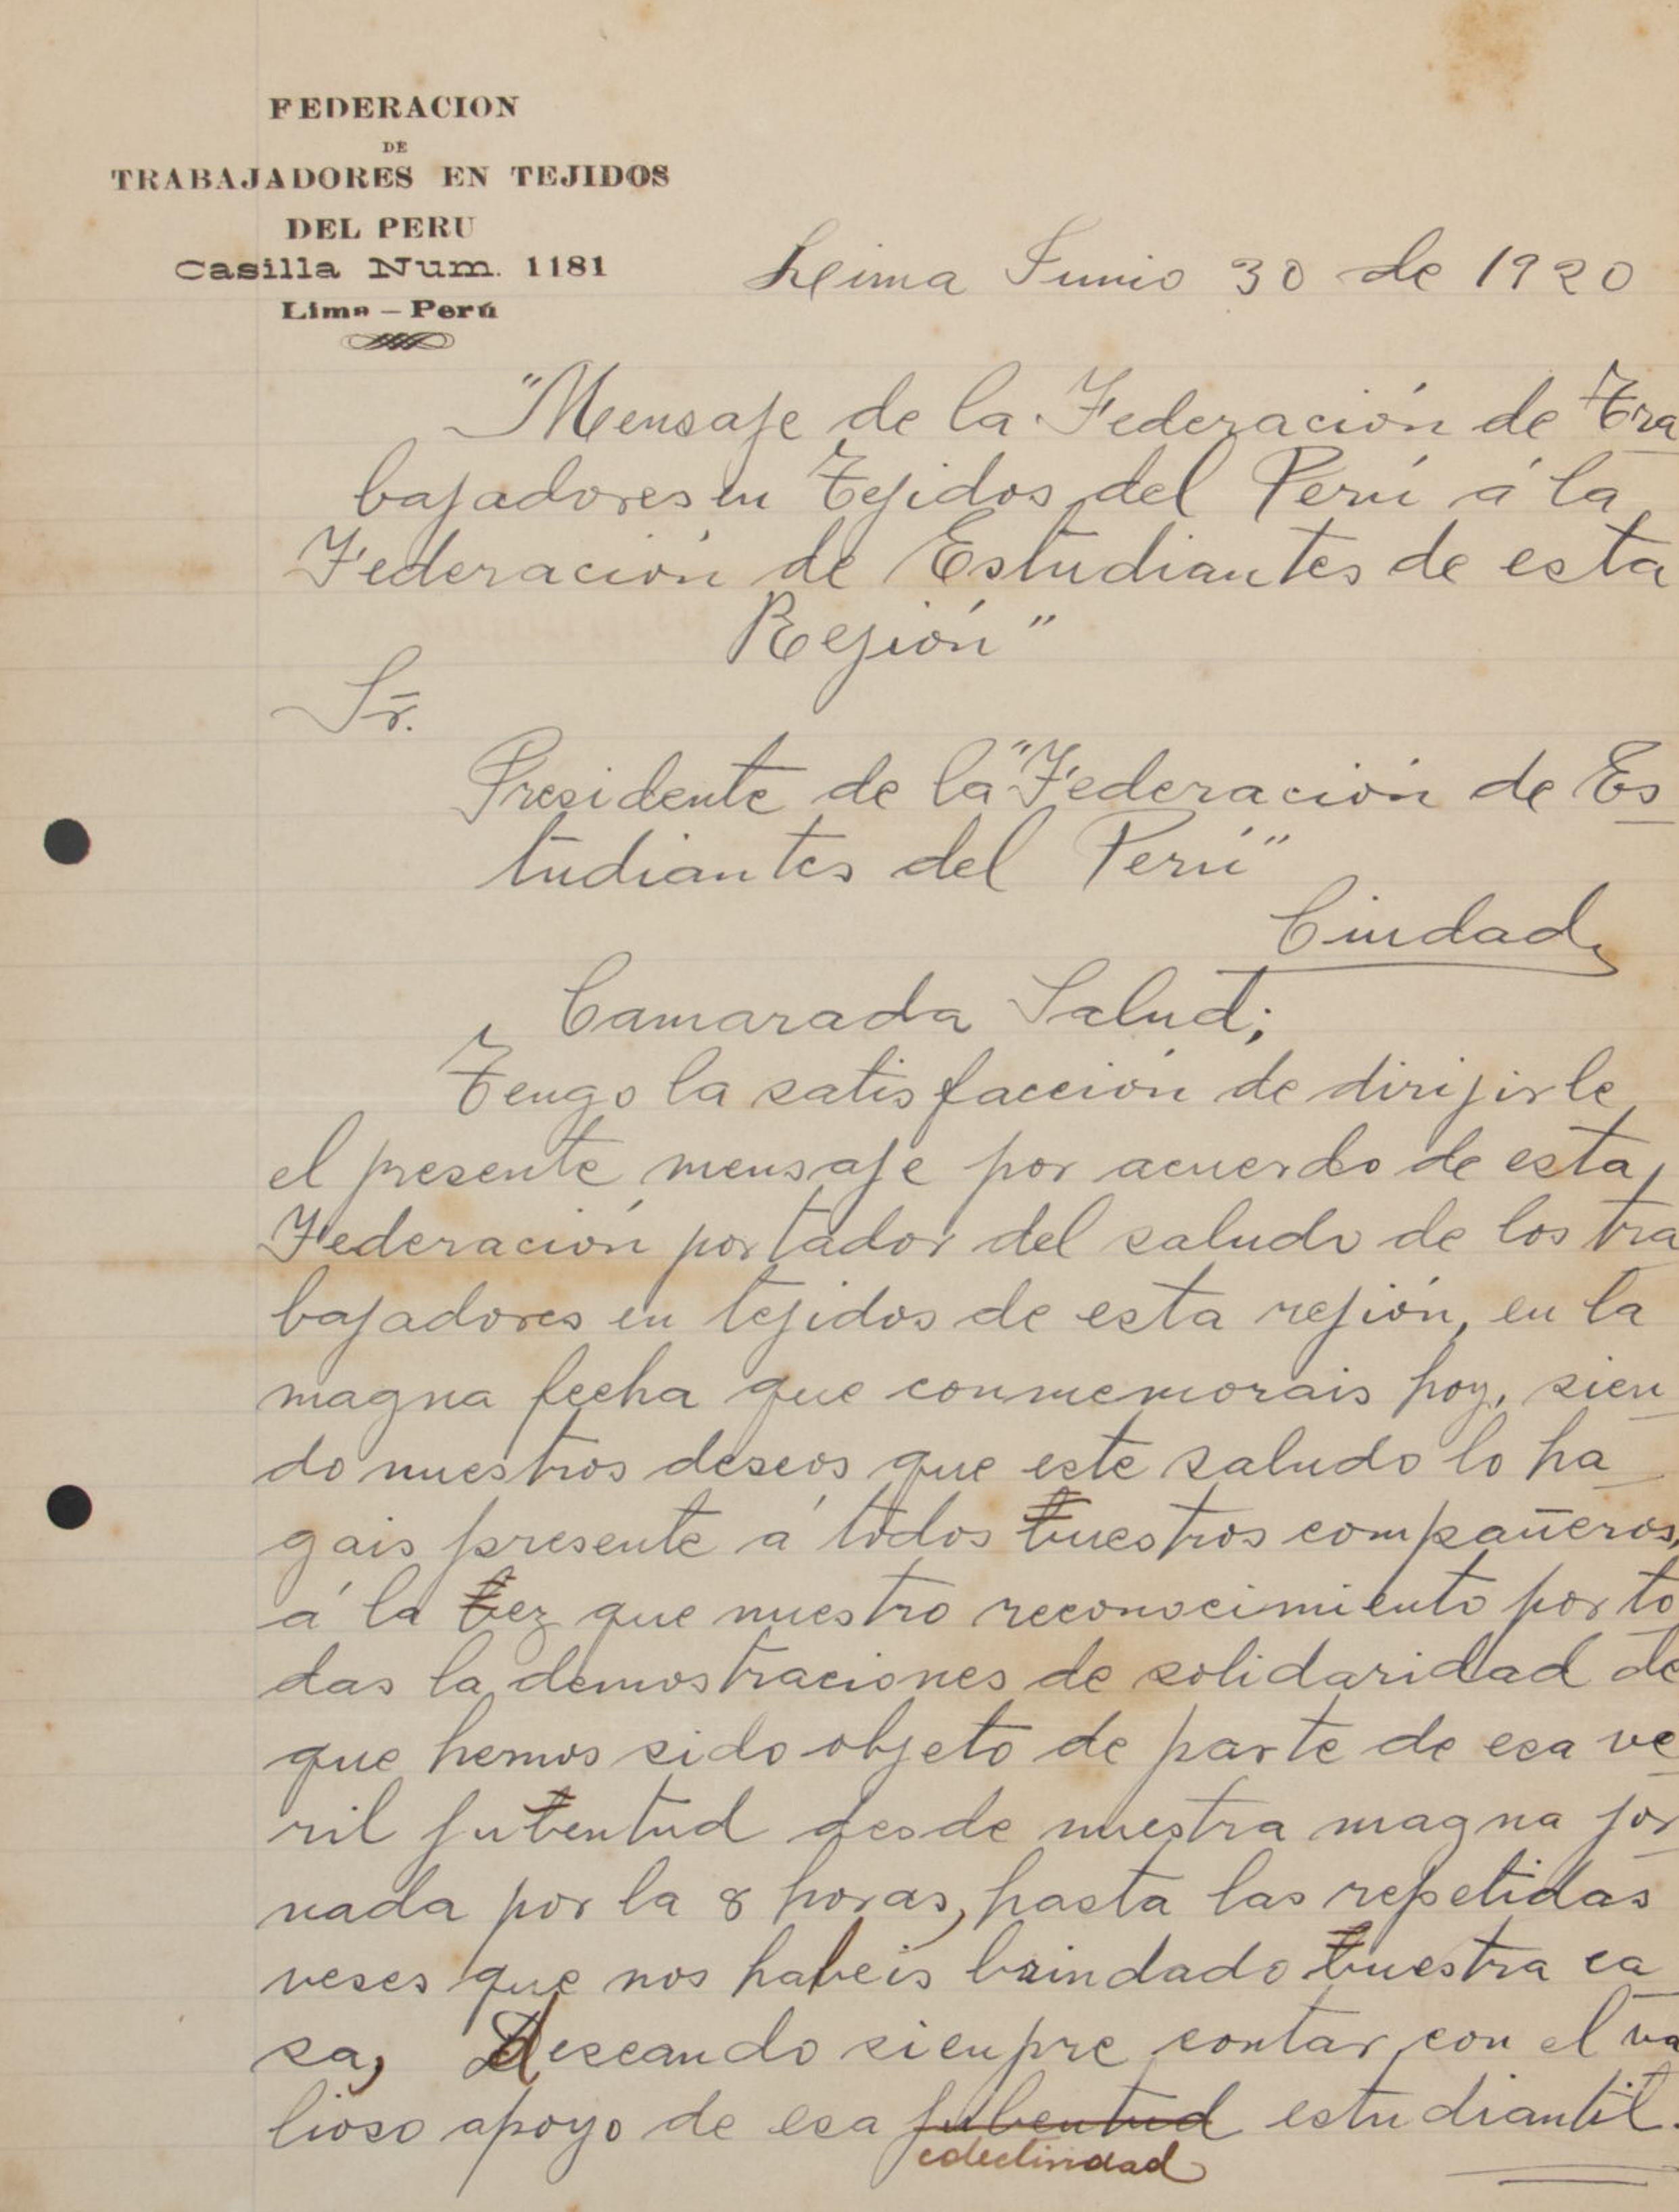 FEDERACION
DE
TRABAJADORES EN TEJIDOS
DEL PERU
Casilla Num. 1181
Lima – Perú
Leima Junio 30 de 1920
"Mensaje de la Federación de Tra
bajadores en Tejidos del Perú á la
Federación de Estudiantes de esta
Rejión"
Sr.
Presidente de la "Federación de Es
tudiantes del Perú"
Ciudad,
Camarada Salud;
Tengo la satisfacción de dirijirle
el presente mensaje por acuerdo de esta
Federación portador del saludo de los tra
bajadores en tejidos de esta rejión, en la
magna fecha que conmemorais hoy, sien
do nuestros deseos que este saludo lo ha
gais presente á todos buestros compañeros,
á la bez que nuestro reconocimiento por to
das la demostraciones de solidaridad de
que hemos sido objeto de parte de esa ve
ril jubentud desde nuestra magna jor
nada por la 8 horas, hasta las repetidas
veses que nos habeis brindado buestra ca
sa, deseando sienpre contar con el va
lioso apoyo de esa jubentud estudiantil.
colectividad